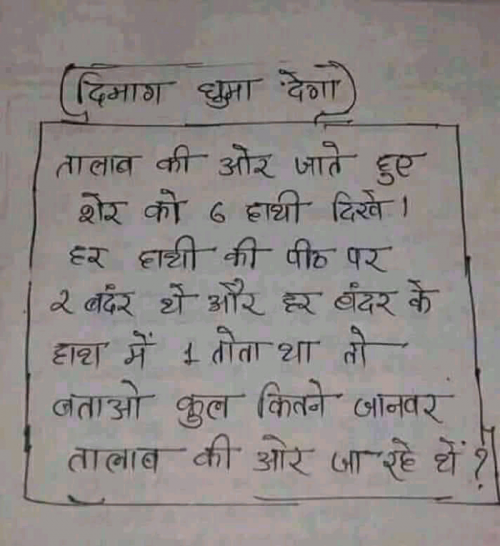 दिमाग घुमा देगा
तालाब की ओर जाते हुए
शेर को 6 हाथी दिखे।
हर हाथी की पीठ पर
2 बदंर थे और हर बंदर के
हाथ में 1 तोता था तो
बताओ कुल कितने जानवर
तालाब की ओर जा रहे थें?